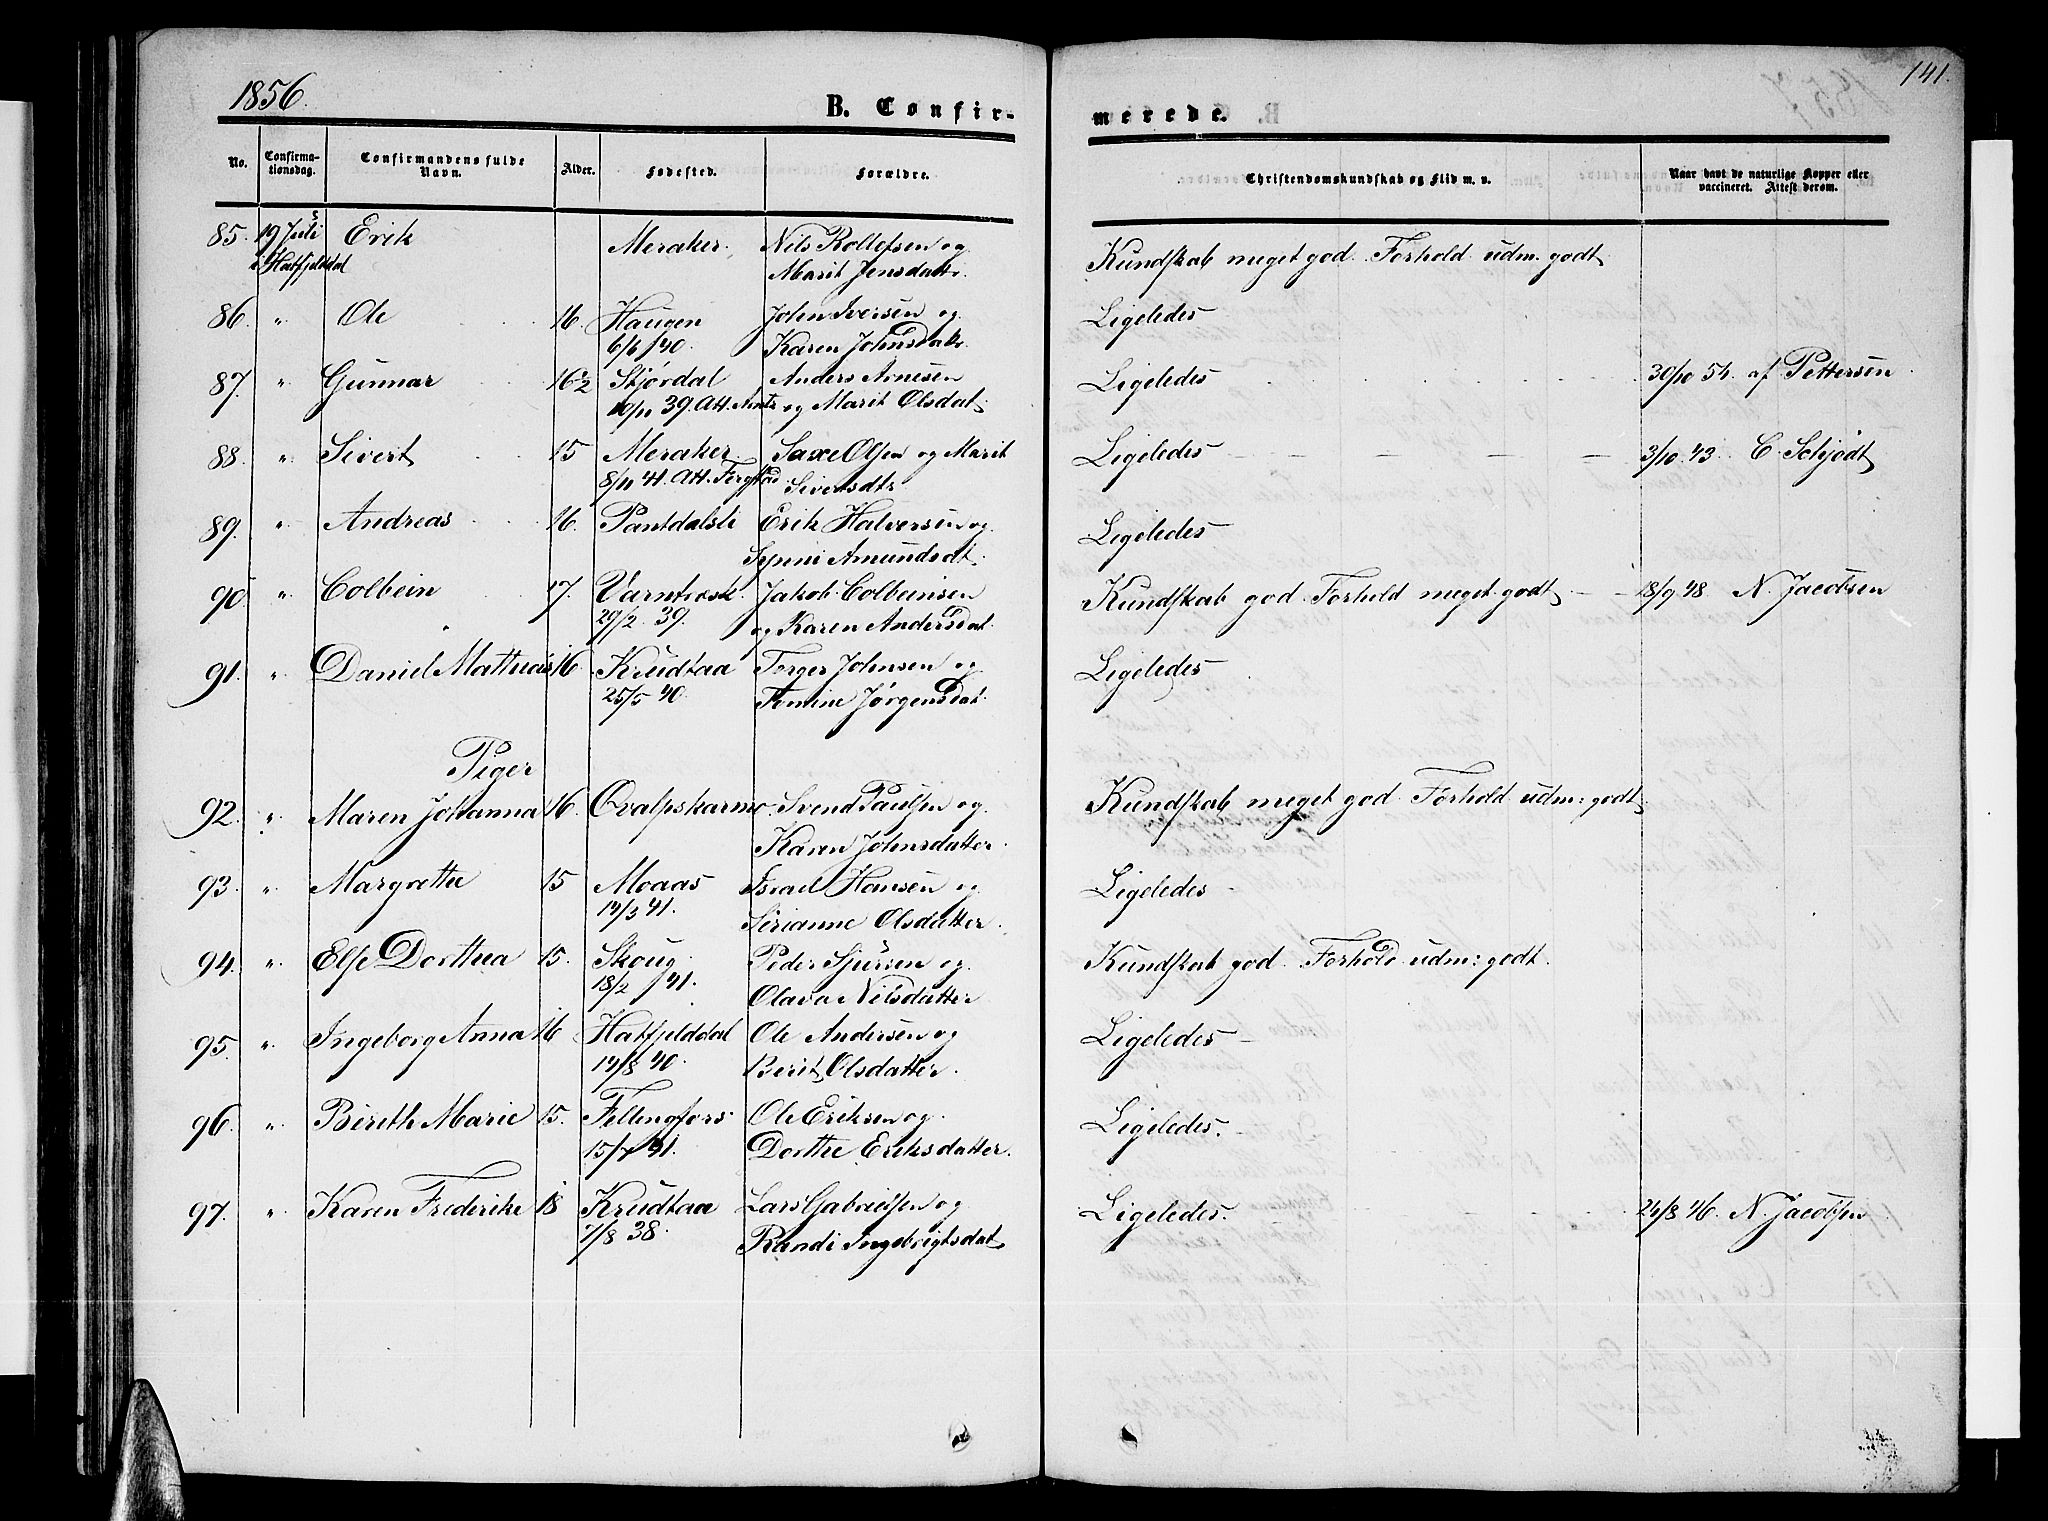 1856. B. Confirmerede. 141.
No. Confirmationsdag. Confirmandens fulde Navn. Alder. Fødested. Forældre. Christendomskundskab og Flid m. v. Naar havt de naturlige Kopper eller vaccineret. Attest derom.
85. 19 Juli Erik Meraker. Nils Rollefsen og Kundskab meget god. Forhold udm. godt
i Hatfjelddal Marit Jensdattr.
86. " Ole 16. Haugen John Iversen og Ligeledes
6/6 /40. Karen Johnsdatr.
87. " Gunnar 16 1/2 Stjørdal Anders Arnesen Ligeledes 30/10 54. af Pettersen
39. Att. og Marit Olsdat.
88. " Sivert 15 Meraker. Saxe Olsen og Marit Ligeledes 3/10 43. C. Schjødt
8/11 41. Att. Sivertsdtr.
89. " Andreas 16. Pantdalsli Erik Halversen og Ligeledes
Synni Amundsdt.
90. " Colbein 17. Varntresk Jakob Colbeinsen Kundskab god Forhold meget godt 18/9 48. N. Jacobsen
29/2 39. og Karen Andersdat.
91. " Daniel Mathias 16 Krudtaa Torger Johnsen og Ligeledes
25/5 40. Tomine Jørgensdat.
Piger
92. " Maren Johanna 16. Qvalpskarmo. Svend Paulsen og Kundskab meget god. Forhold udm: godt.
Karen Johnsdatter.
93. " Margrethe 15 Moaas Israel Hansen og Ligeledes
14/3 41. Sirianne Olsdatter.
94. " Else Dorthea 15. Skoug Peder Sjursen og Kundskab god. Forhold udm: godt.
18/2 /41. Olava Nilsdatter
95. " Ingeborg Anna 16 Hatfjelddal Ole Andersen og Ligeledes
14/8 40. Berit Olsdatter.
96. " Birith Marie 15. Fellengfors Ole Eriksen og Ligeledes.
41. Dorthe Eriksdatter.
97. " Karen Frederike 18 Krudtaa Lars Gabrielsen og Ligeledes. 24/8 46. N. Jacobsen
7/8 38. Randi Ingebrigtsdat.